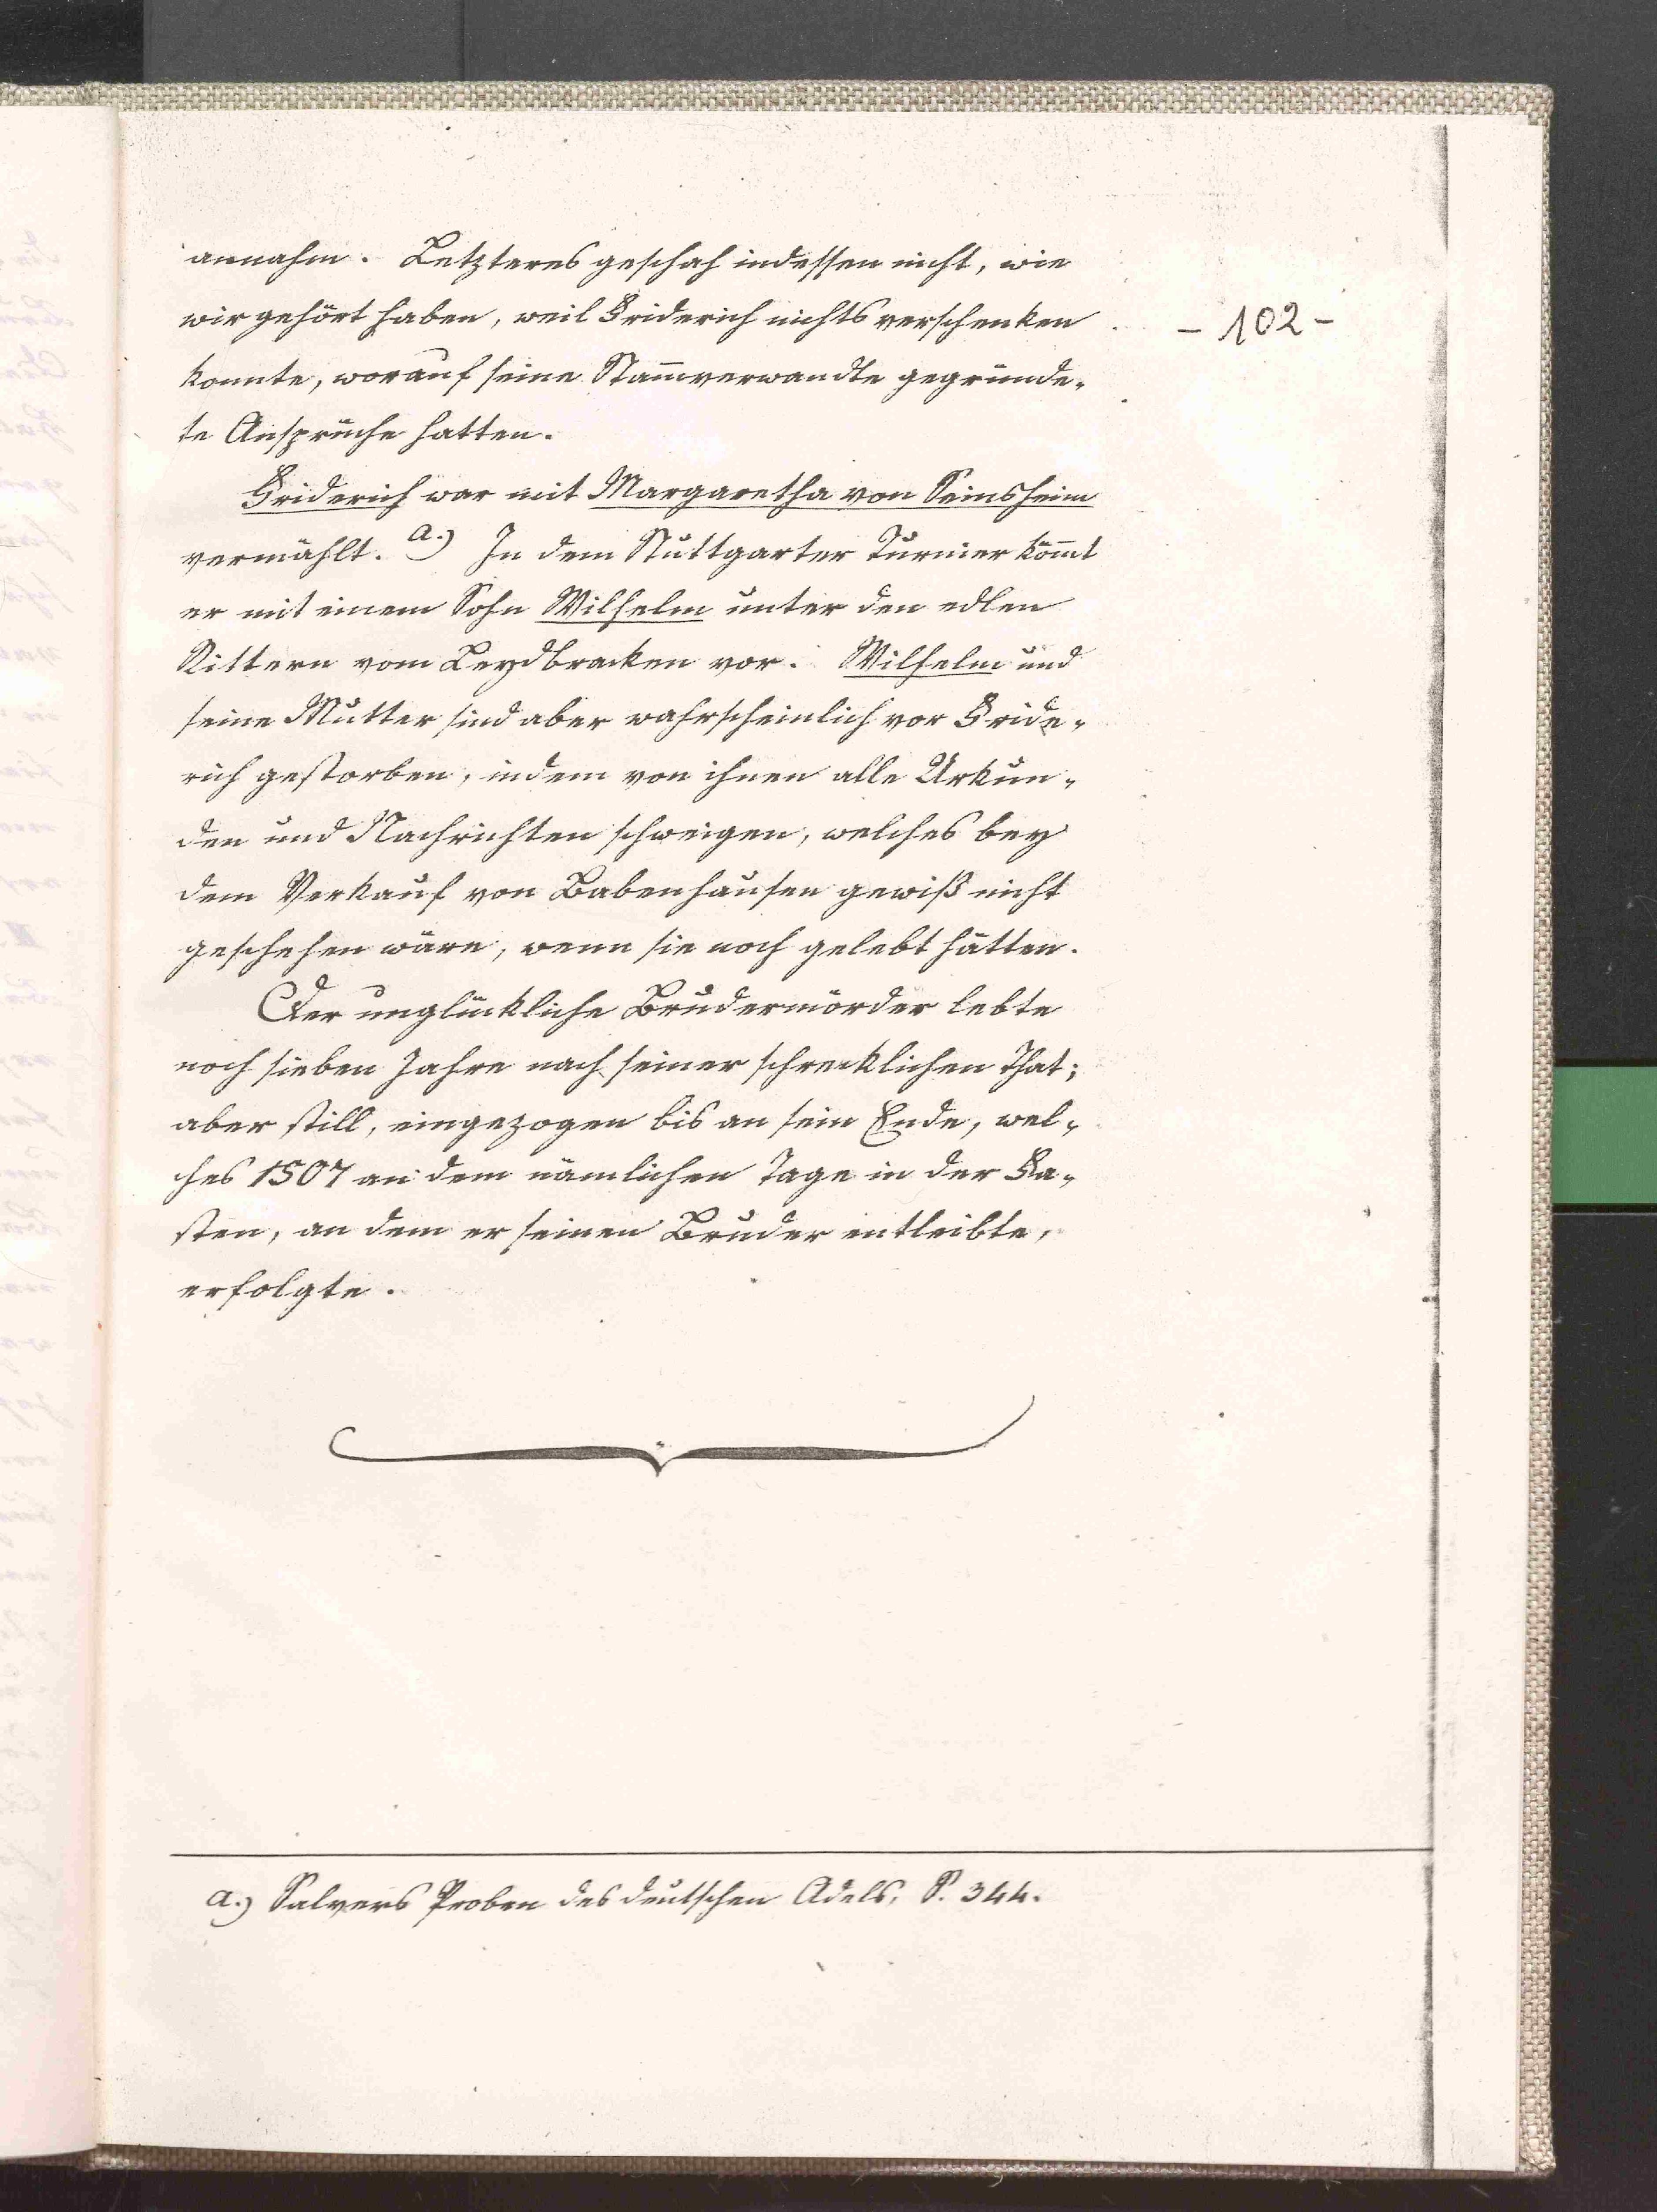 annahm. Letzteres geschah indessen nicht, wie
wir gehört haben, weil Friderich nichts verschenken
- 102 -
konnte, worauf seine Stam̄verwandte gegründe-
te Ansprüche hatten.
Friderich war mit Margaretha von Seinsheim
vermählt. a.) In dem Stuttgarter Turnier köm̄t
er mit einem Sohn Wilhelm unter den edlen
Rittern vom Leydbracken vor. Wilhelm und
seine Mutter sind aber wahrscheinlich vor Fride-
rich gestorben, indem von ihnen alle Urkun-
den und Nachrichten schweigen, welches bey
dem Verkauf von Babenhausen gewiß nicht
geschehen wäre, wenn sie noch gelebt hätten.
Der unglückliche Brudermörder lebte
noch sieben Jahre nach seiner schrecklichen That;
aber still, eingezogen bis an sein Ende, wel-
ches 1507 an dem nämlichen Tage in der Fa-
sten, an dem er seinen Bruder entleibte,
erfolgte.
a.) Salvers Proben des deutschen Adels, S. 344.